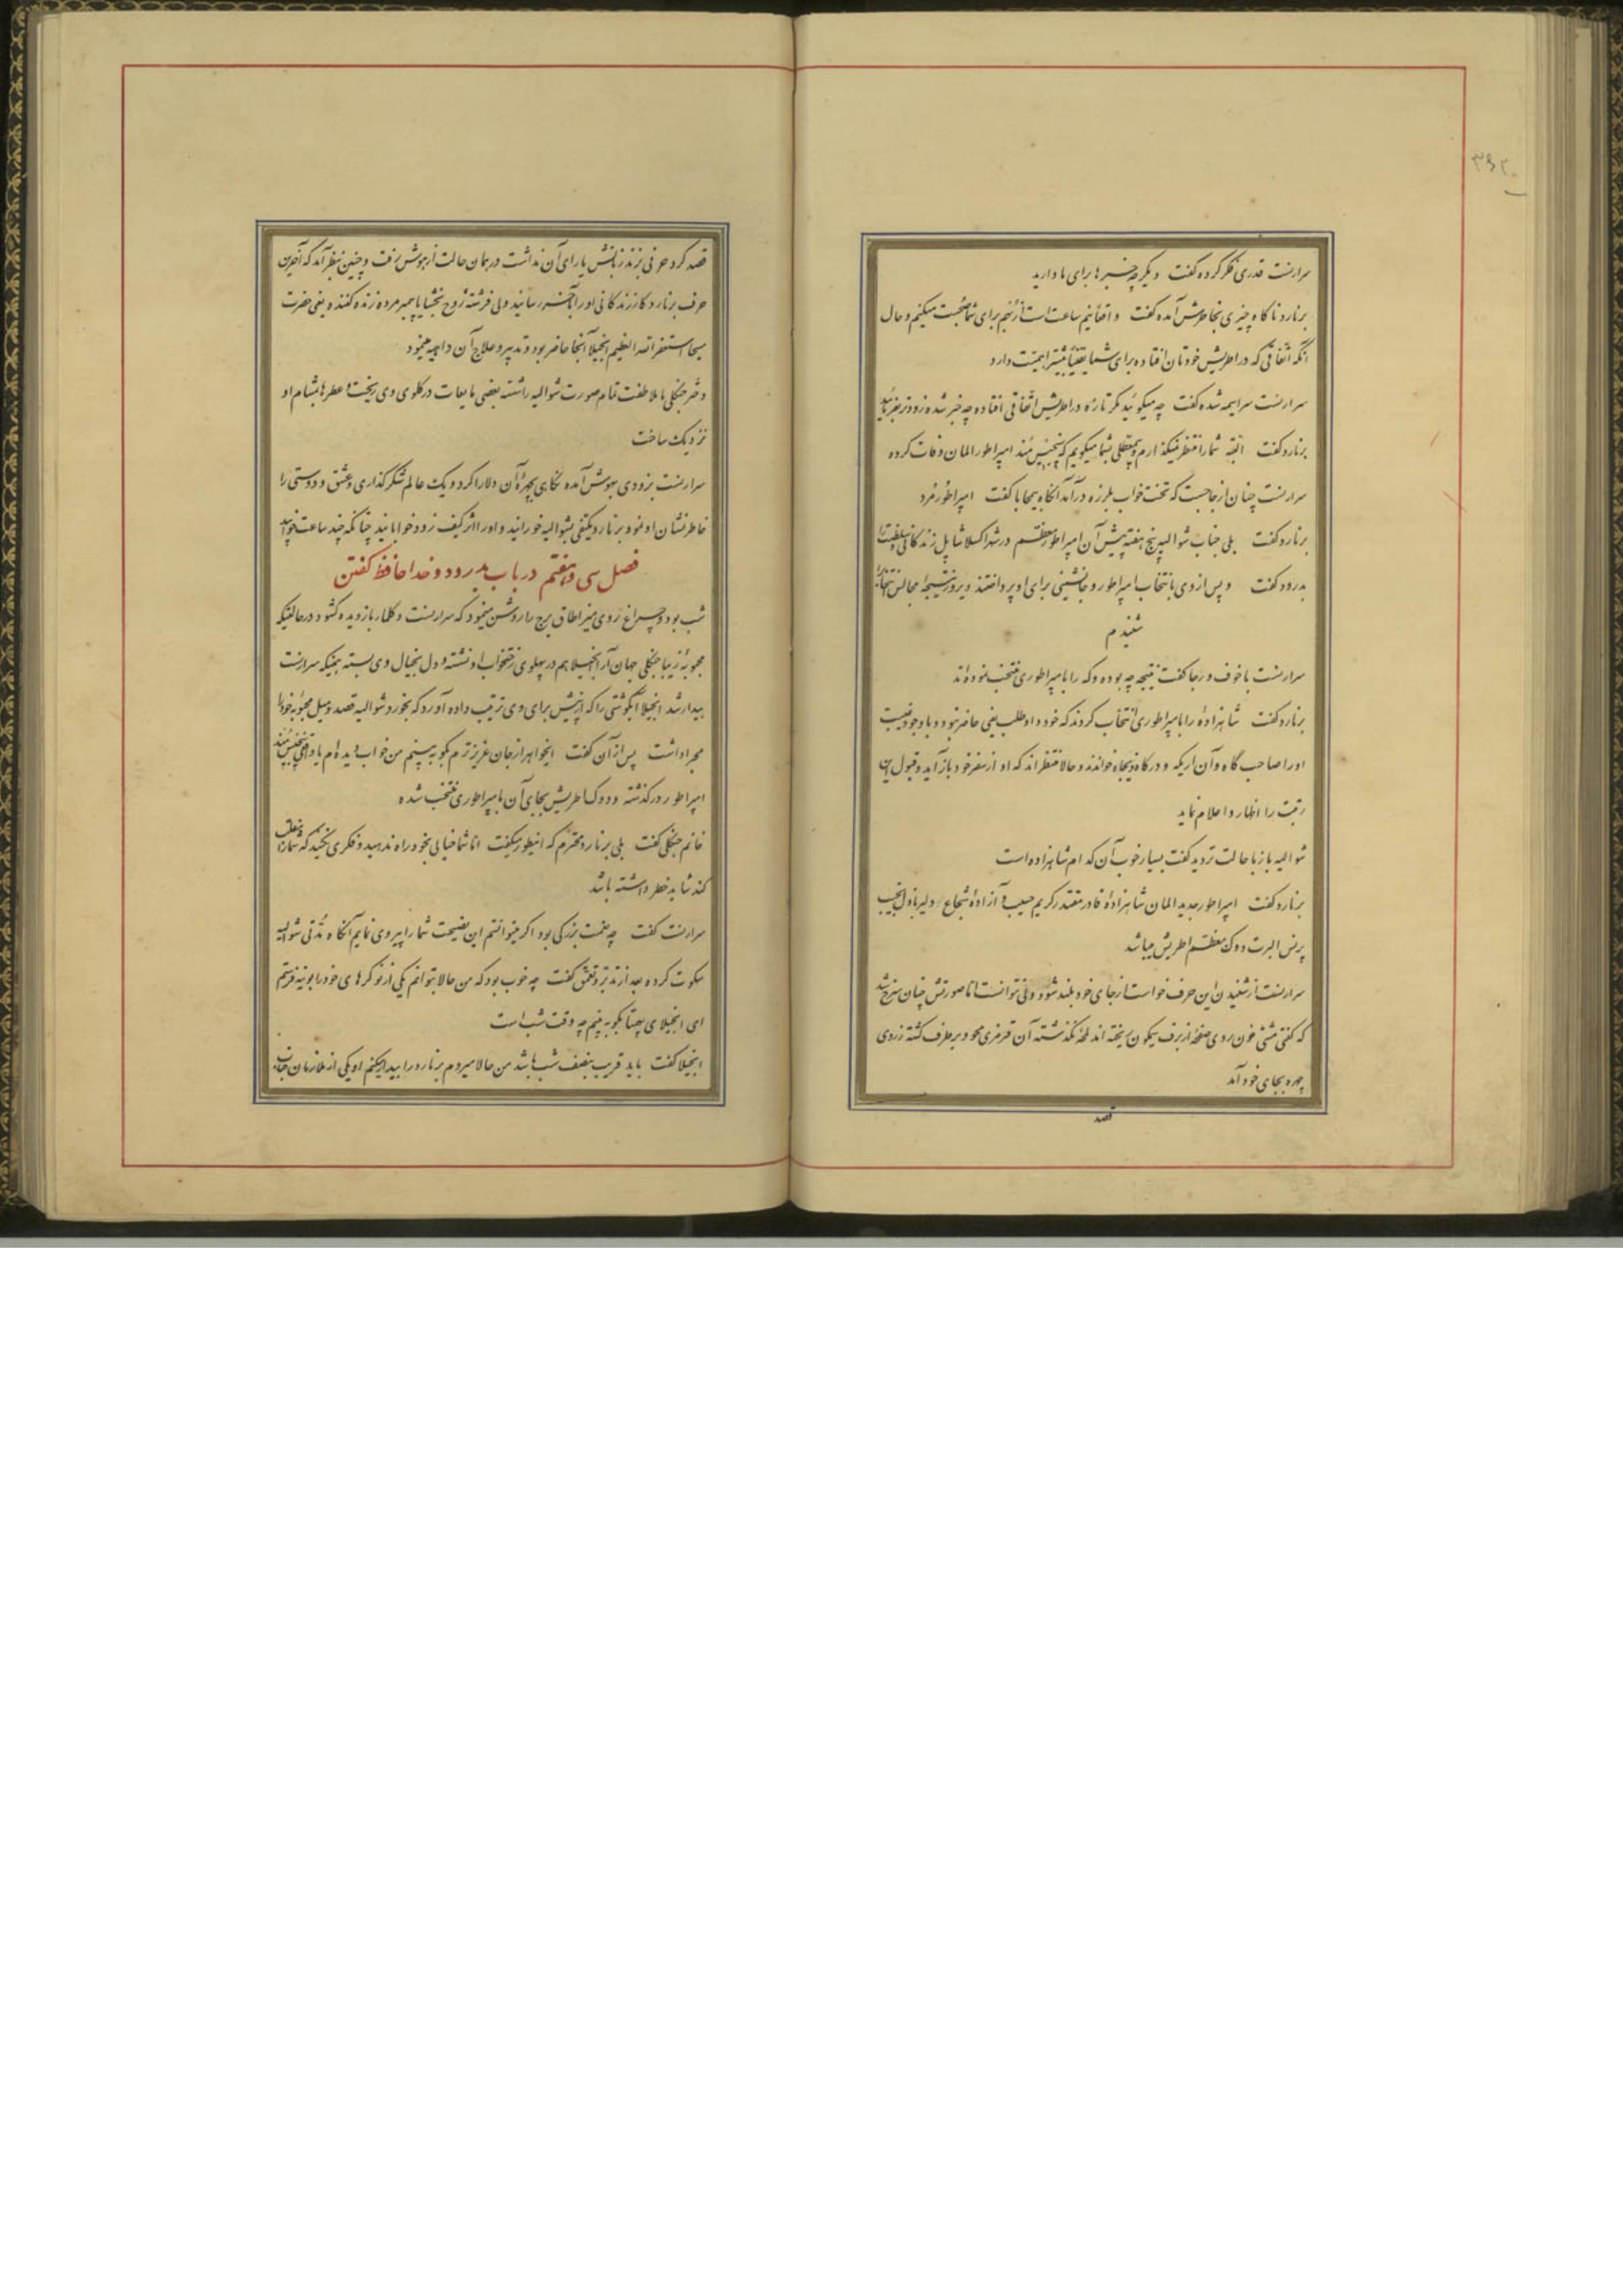 ۳۶۲
سرارنست قدری فکر کرده گفت دیگر چه خبرها برای ما دارید
برنارد ناگاه چیزی بخاطرش آمده گفت واقعاً نیم ساعت است از رُنهم برای شما صُحبت میکنم و حال
آنکه اتّفاقی که در اطریش خودتان افتاده برای شما یقیناً بیشتر اهمیّت دارد
سرارنست سراسیمه شده گفت چه میگوئید مگر تازه در اطریش اتّفاقی افتاده چه خبر شده زودتر بفرمائید
برنارد گفت البتّه شما را منتظر نمیگذارم و بی‌معطّلی بشما میگویم که پنجنبس ئمند امپراطور المان وفات کرده
سرارنست چنان از جا جست که تخت خواب بلرزه درآمد آنگاه بیمحابا گفت امپراطور مُرد
برنارد گفت بلی جناب شوالیه پنج هفته پیش آن امپراطور معظّم در شهر اکسلاشاپل زندگانی و سلطنت را
بدرود گفت و پس از وی بانتخاب امپراطور و جانشینی برای او پرداختند و دیروز نتیجهٔ مجالس انتخاب را
شنیدم
سرارنست با خوف و رجا گفت نتیجه چه بوده و که را بامپراطوری منتخب نموده‌اند
برنارد گفت شاهزادهٔ را بامپراطوری انتخاب کردند که خود داوطلب یعنی حاضر نبود و با وجود غیبت
او را صاحب گاه و آن اریکه و درگاه و پنجاه خواندند و حالا منتظراند که او از سفر خود بازآید و قبول این
رتبت را اظهار و اعلام نماید
شوالیه باز با حالت تردید گفت بسیار خوب آن کدام شاهزاده است
برنارد گفت امپراطور جدید المان شاهزادهٔ قادر مقتدر کریم حسیب و آزادهٔ شجاع دلیر باذل نجیب
پرنس البرت دوک معظّم اطریش میباشد
سرارنست از شنیدن این حرف خواست از جای خود بلند شود ولی نتوانست امّا صورتش چنان سرخ شد
که گفتی مشتی خون روی صفحهٔ از برف نیکون ریخته اند لمحهٔ نگذشته آن قرمزی محو و برطرف گشته زردی
چهره بجای خود آمد
قصد
قصد کرد حرفی بزند زبانش یارای آن نداشت در همان حالت از هوش رفت و چنین بنظر آمد که آخرین
حرف برنارد کار زندگانی او را بآخر رسانید ولی فرشتهٔ روح بخش یا پیمبر مرده زنده کننده یعنی حضرت
مسیحا استغفر الله العظیم انجیلا آنجا حاضر بود و تدبیر و علاج آن داهیه مینمود
دختر جنگلی با ملاطفت تمام صورت شوالیه را شسته بعضی مایعات در گلوی وی ریخت و عطرها بمشام او
نزدیک ساخت
سرارنست بزودی بهوش آمده نگاهی بچهرهٔ آن دلارا کرد و یک عالم شکرگذاری و عشق و دوستی را
خاطرنشان او نمود برنارد یکنفی بشوالیه خورانید و او را اثر کیف زود خوابانید چنانکه چند ساعت خوابید
فصل سی و هفتم در باب بدرود و خداحافظ گفتن
شب بود و چراغ روی میز اطاق برج را روشن مینمود که سرارنست دگلمار باز دیده گشود در حالتیکه
محبوبهٔ زیبا جنگلی جهان آرا انجیلا هم در پهلوی رختخواب او نشسته و دل بخیال وی بسته همینکه سرارنست
بیدار شد انجیلا آبگوشتی را که از پیش برای وی ترتیب داده آورد که بخورد شوالیه قصد و میل محبوبهٔ خود را
مجرا داشت پس از آن گفت ایخواهر از جان عزیزترم بگو ببینم من خواب دیده‌ام یا واقعاً پنجنبس ئمند
امپراطور درگذشته و دوک اطریش بجای آن بامپراطوری منتخب شده
خانم جنگلی گفت بلی برنارد محترم که اینطور میگفت امّا شما خیالی بخود راه ندهید و فکری نکنید که شما را
کند شاید خطر داشته باشد
سرارنست گفت چه نعمت بزرگی بود اگر میتوانستم این نصیحت شما را پیروی نمایم آنگاه مُدّتی شوالیه
سکوت کرده بعد از تدبّر و تعمّق گفت چه خوب بود که من حالا بتوانم یکی از نوکرهای خود را بوینه فرستم
ای انجیلای بیهمتا بگو ببینم چه وقت شب است
انجیلا گفت باید قریب بنصف شب باشد من حالا میروم برنارد را بیدار میکنم او یکی از ملازمان جناب